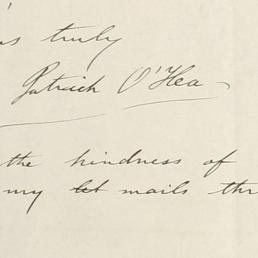 truly
Patrick O'Hea
the kindness of
my let mails thr